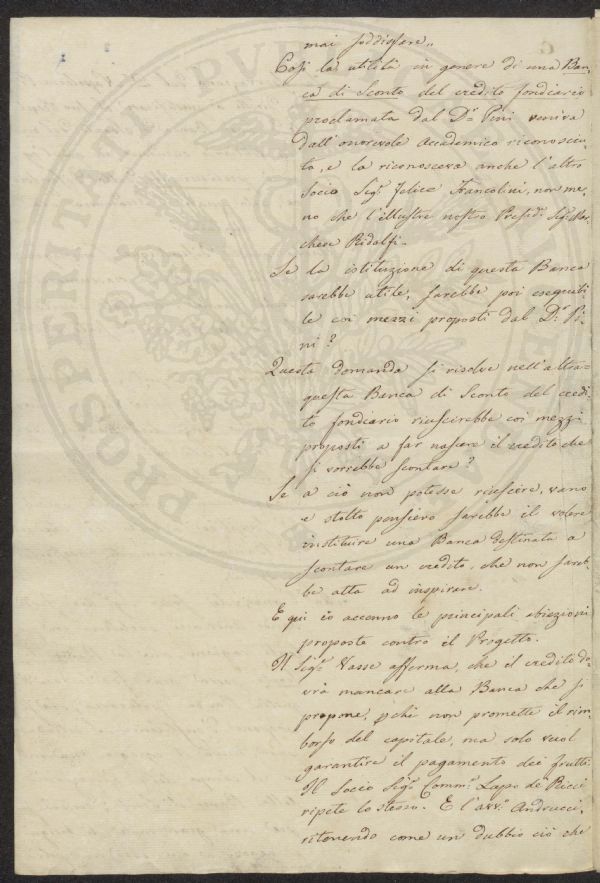 mai soddisfare.,
Così la utilità in genere di una Ban
ca di Sconto del credito fondiario
proclamata dal D.r Pini veniva
dall'onorevole Accademico riconosciu
to, e la riconosceva anche l'altro
Socio Sig.r Felice Francolini, non me
no che l'illustre nostro Presid.e Sig. Mar
chese Ridolfi.
Se la istituzione di questa Banca
sarebbe utile, sarebbe poi eseguibi
le coi mezzi proposti dal D.r Pi
ni?
Questa domanda si risolve nell'altra=
questa Banca di Sconto del credi
to fondiario riuscirebbe coi mezzi
proposti a far nascere il credito che
si vorrebbe scontare?
Se a ciò non potesse riuscire, vano
e stolto pensiero sarebbe il volere
instituire una Banca destinata a
scontare un credito, che non sareb
be atta ad inspirare.
E qui io accenno le principali obiezioni
proposte contro il Progetto.
Il Sig.r Vasse afferma, che il credito do
vrà mancare alla Banca che si
propone, pchè non promette il rim
borso del capitale, ma solo vuol
garantire il pagamento dei frutti.
Il Socio Sig.r Comm.e Lapo de' Ricci
ripete lo stesso. E l'avv.o Andreucci,
ritenendo come un dubbio ciò che
PROSPERITATI PUBLICAE